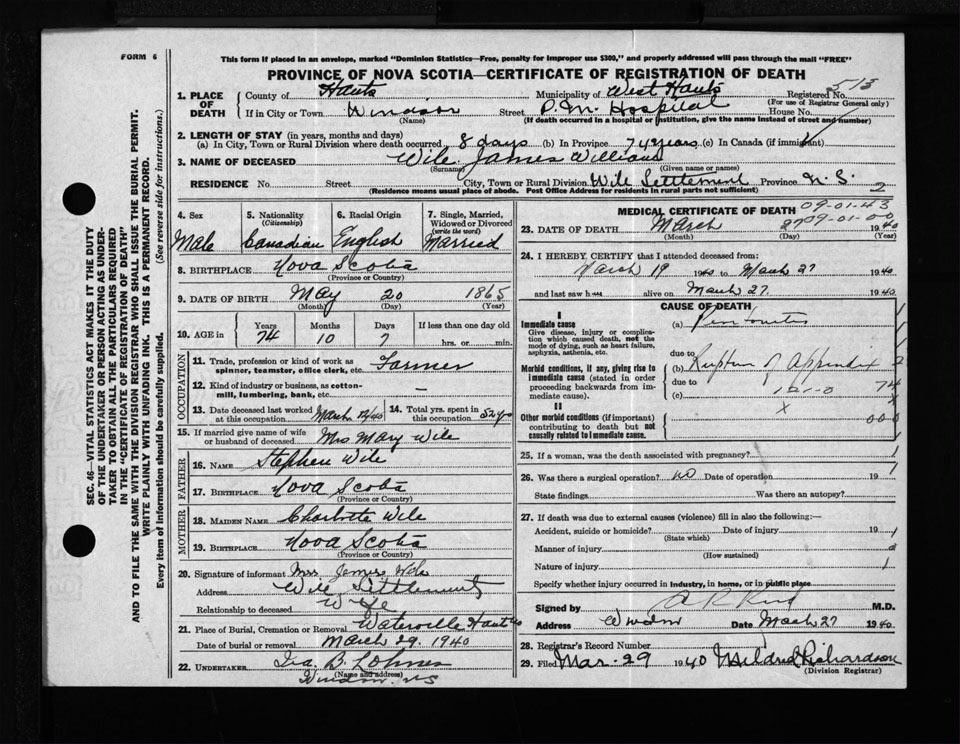 FORM 6
This form if placed in an envelope, marked "Dominion Statistics—Free, penalty for improper use $300," and properly addressed will pass through the mail "FREE"
PROVINCE OF NOVA SCOTIA—CERTIFICATE OF REGISTRATION OF DEATH
513
1. PLACE OF DEATH County of Hants Municipality of West Hants Registered No.
(For use of Registrar General only)
If in City or Town Windsor Street P. M. Hospital House No.
(Name) (If death occurred in a hospital or institution, give the name instead of street and number)
2. LENGTH OF STAY (in years, months and days)
(a) In City, Town or Rural Division where death occurred 8 days (b) In Province 74 years (c) In Canada (if immigrant)
3. NAME OF DECEASED Wile James William
(Surname) (Given name or names)
RESIDENCE No. Street City, Town or Rural Division Wile Settlement Province N. S.
2
(Residence means usual place of abode. Post Office Address for Residents in rural parts not sufficient)
SEC. 46—VITAL STATISTICS ACT MAKES IT THE DUTY
OF THE UNDERTAKER OR PERSON ACTING AS UNDER-
TAKER TO OBTAIN ALL THE PARTICULARS REQUIRED
IN THE "CERTIFICATE OF REGISTRATION OF DEATH"
AND TO FILE THE SAME WITH THE DIVISION REGISTRAR WHO SHALL ISSUE THE BURIAL PERMIT.
WRITE PLAINLY WITH UNFADING INK. THIS IS A PERMANENT RECORD.
Every item of information should be carefully supplied. (See reverse side for instructions.)
4. Sex 5. Nationality (Citizenship) 6. Racial Origin 7. Single, Married, Widowed or Divorced (write the word)
Male Canadian English Married
8. BIRTHPLACE Nova Scotia
(Province or Country)
9. DATE OF BIRTH May 20 1865
(Month) (Day) (Year)
10. AGE in Years Months Days If less than one day old
74 10 7 hrs. or min.
OCCUPATION
11. Trade, profession or kind of work as spinner, teamster, office clerk, etc. Farmer
12. Kind of industry or business, as cotton-mill, lumbering, bank, etc. —
13. Date deceased last worked at this occupation March 14. Total yrs. spent in this occupation 52 yrs
15. If married give name of wife or husband of deceased Mrs Mary Wile
FATHER
16. NAME Stephen Wile
17. BIRTHPLACE Nova Scotia
(Province or Country)
MOTHER
18. MAIDEN NAME Charlotte Wile
19. BIRTHPLACE Nova Scotia
(Province or Country)
20. Signature of informant Mrs. James Wile
Address Wile Settlement
Relationship to deceased Wife
21. Place of Burial, Cremation or Removal Waterville Hants
Date of burial or removal March 29. 1940
22. UNDERTAKER Ira. B. Lohnes
(Name and address)
Windsor, NS
MEDICAL CERTIFICATE OF DEATH 09-01-43
09-01-00
23. DATE OF DEATH March 27 1940
(Month) (Day) (Year)
24. I HEREBY CERTIFY that I attended deceased from:
March 19 1940 to March 27 1940
and last saw h alive on March 27. 1940
CAUSE OF DEATH
I
Immediate cause (a)
Give disease, injury or complication which caused death, not the mode of dying, such as heart failure, asphyxia, asthenia, etc.
due to
Morbid conditions, if any, giving rise to immediate cause (stated in order proceeding backwards from immediate cause). (b) Rupture of Appendix
due to
(c) 121-0 74
II X
Other morbid conditions (if important) contributing to death but not causally related to immediate cause. 000
25. If a woman, was the death associated with pregnancy?
26. Was there a surgical operation? no Date of operation 19
State findings Was there an autopsy?
27. If death was due to external causes (violence) fill in also the following:—
Accident, suicide or homicide? Date of injury 19
(State which)
Manner of injury
(How sustained)
Nature of injury
Specify whether injury occurred in industry, in home, or in public place
Signed by M.D.
Address Windsor Date March 27 1940.
28. Registrar's Record Number
29. Filed Mar. 29 1940 Mildred Richardson
(Division Registrar)